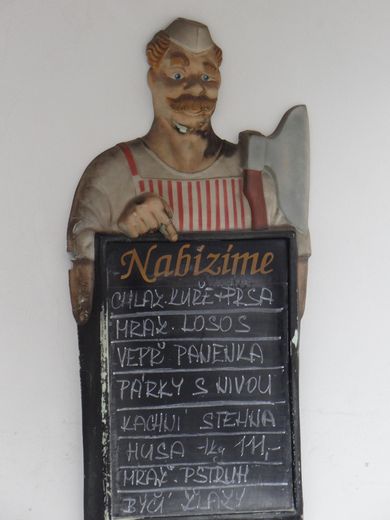 Nabízíme
CHLAZ. KUŘE + PRSA
MRAŽ. LOSOS
VEPŘ PANENKA
PÁRKY S NIVOU
KACHNÍ STEHNA
HUSA 1kg 111,-
MRAŽ. PSTRUH
BÝČÍ ŽLÁZY